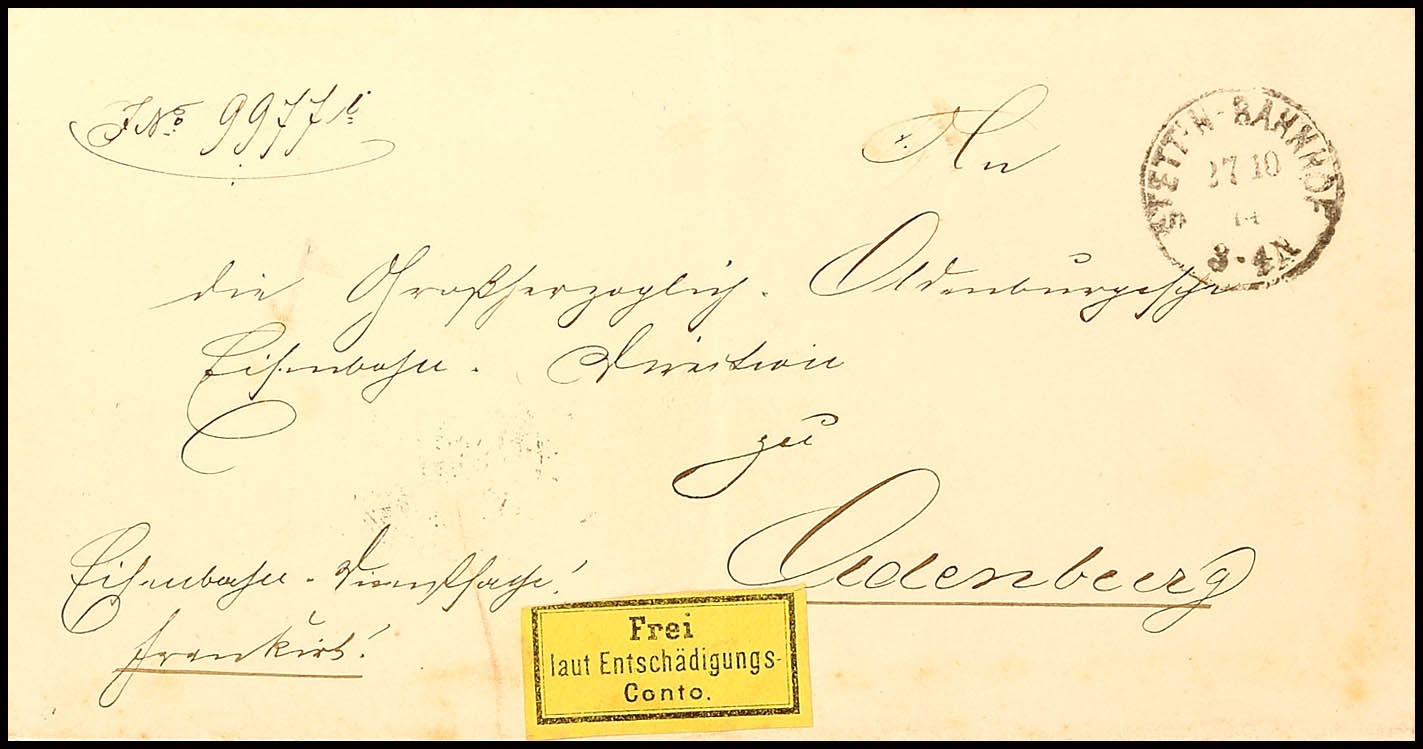 J No. 9977
An
STETTIN-BAHNHOF
27 10
3-4N
die Großherzoglich. Oldenburgische
Eisenbahn. Direction
zu
Oldenburg
Eisenbahn-Dienstsache!
frankirt!
Frei
laut Entschädigungs-
Conto.